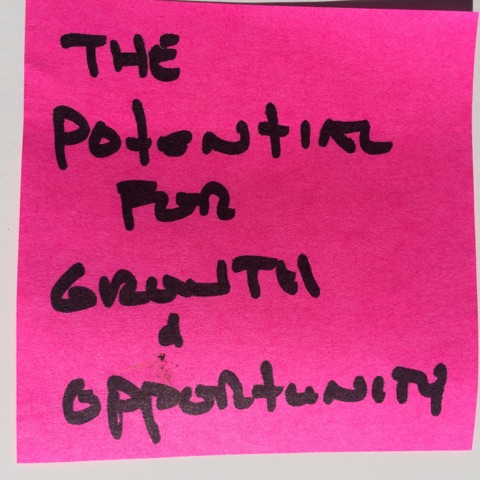 THE
POtENtIAL
FOR
GROWTH
&
OPPORtUNITY